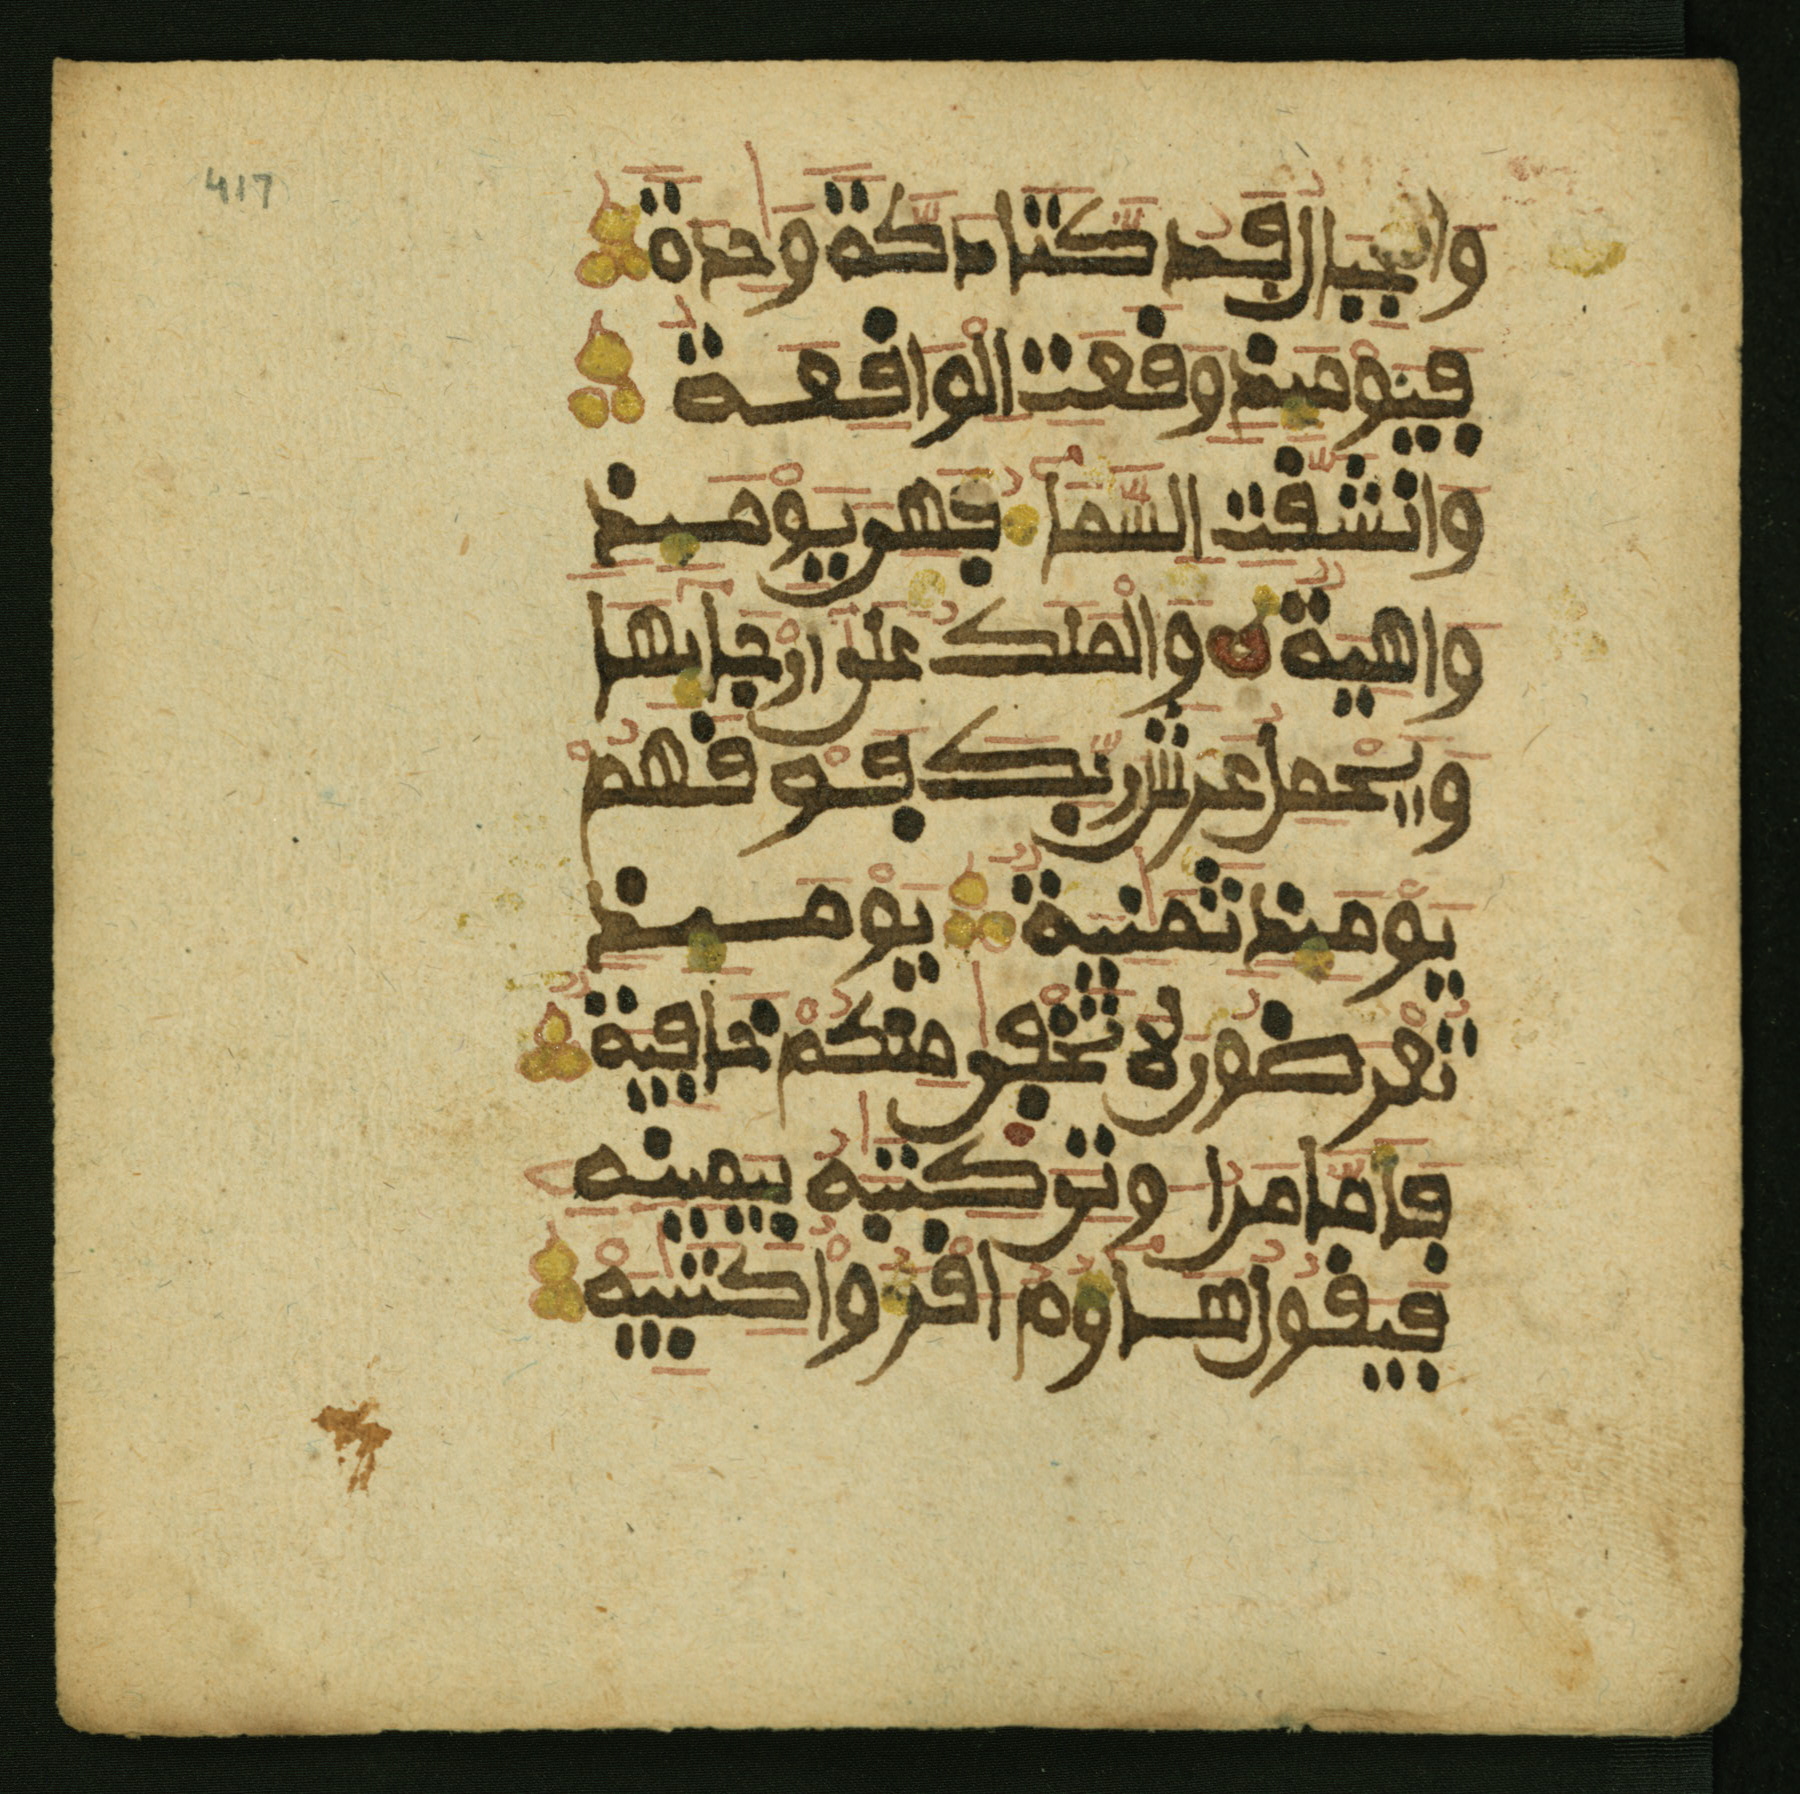 417
وَالجِبَالُ فَدُكَّتَا دَكَّةً وَٰحِدَةً
فَيَوْمَئِذٍ وَقَعَتِ الْوَاقِعَةُ
وَانشَقَّتِ السَّمَاءُ فَهِيَ يَوْمَئِذٍ
وَاهِيَةٌ وَالْمَلَكُ عَلَىٰ أَرْجَائِهَا
وَيَحْمِلُ عَرْشَ رَبِّكَ فَوْقَهُمْ
يَوْمَئِذٍ ثَمَٰنِيَةٌ يَوْمَئِذٍ
تُعْرَضُونَ لَا تَخْفَىٰ مِنكُمْ خَافِيَةٌ
فَأَمَّا مَنُ اوتِيَ كِتَٰبَهُ بِيَمِينِهِ
فَيَقُولُ هَاؤُمُ اقْرَءُوا كِتَٰبِيَهْ